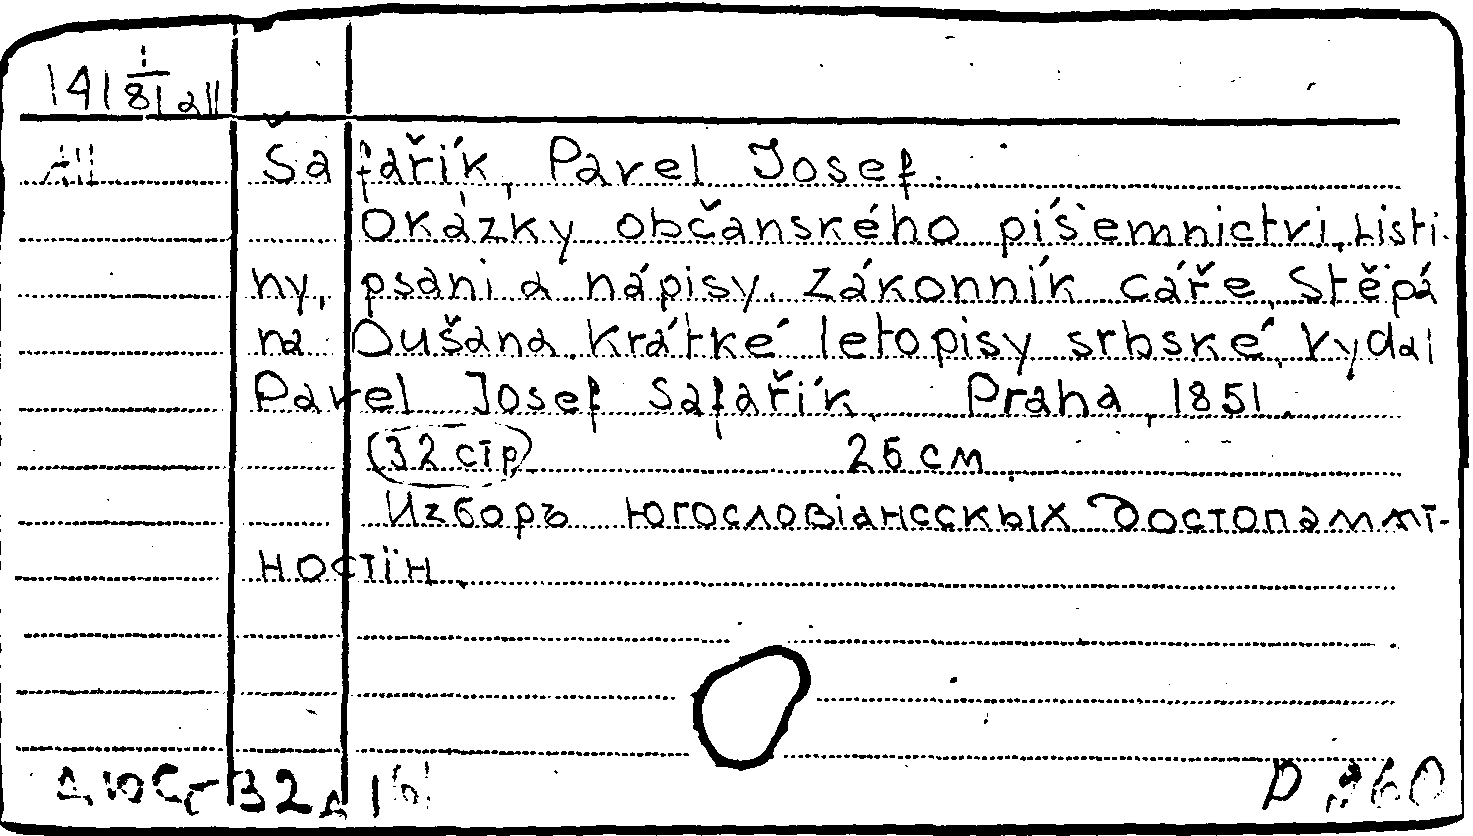 141 1/81 all
All Šafařík, Pavel Josef.
Okázky občanského písemnictvi, Listi-
ny, psani a nápisy. Zákonník cáře Stěpá
na Dušana. Krátké letopisy srbské, Vydal
Pavel Josef Šafařík. Praha, 1851.
(32 стр) 26 см
Изборъ югословіансскых достопаммт-
ностїн.